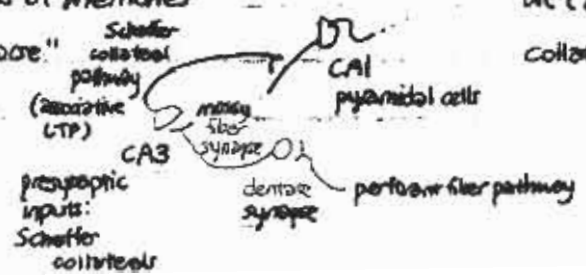 of memories
Schaffer
collateral
pathway
(associative
LTP)
core."
CA1
pyramidal cells
mossy
fiber
synapse
CA3
presynaptic
inputs:
Schaffer
collaterals
dentate
synapse
perforant fiber pathway
colla